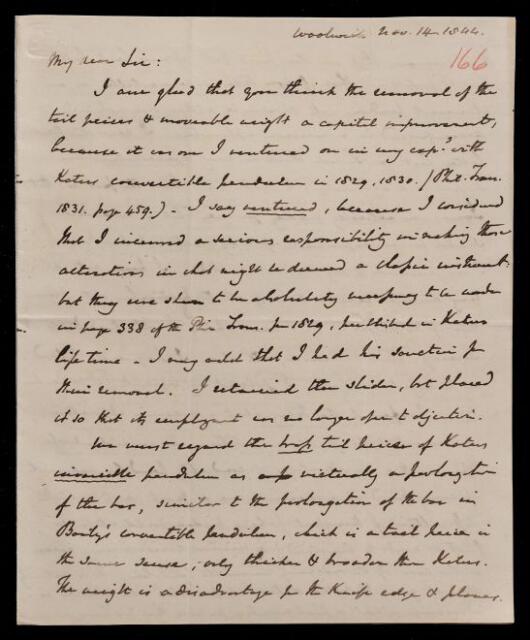 Woolwich Nov. 14. 1844.
166
My dear Sir:
I am glad that you think the removal of the
tail pieces & moveable weight a capital improvement,
because it is one I ventured on in my exp.ts with
Katers convertible pendulum in 1829, 1830. (Phil. Trans.
1831. page 459.) - I say ventured, because I considered
that I incurred a serious responsibility in making these
alterations in what might be deemed a classic instrument:
but they were shewn to be absolutely necessary to be made
in page 338 of the Phil Trans. for 1829, published in Katers
life time - I may add that I had his sanction for
their removal. I retained the slider, but placed
it so that its employment was no longer open to objection.
We must regard the brass tail pieces of Katers
pendulum as virtually a prolongation
of the bar, similar to the prolongation of the bar in
Baily's convertible pendulum, which is a tail piece in
the same sense, only thicker & broader than Katers.
The weight is a disadvantage for the knife edge & planes.